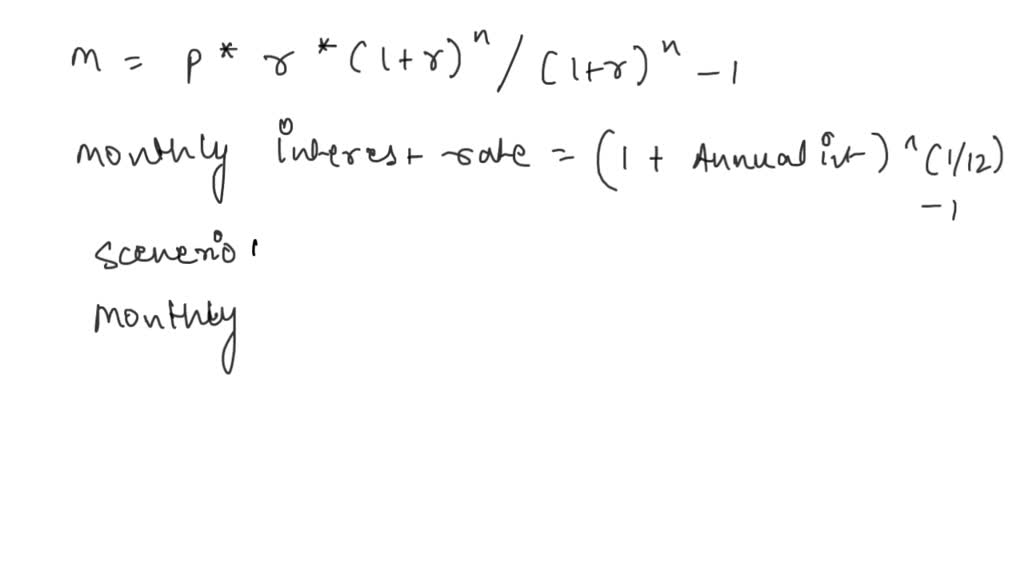 m = p * r * (1+r)^n / (1+r)^n - 1
monthly interest rate = (1 + Annual int) ^ (1/12)
-1
scenerio 1
monthly